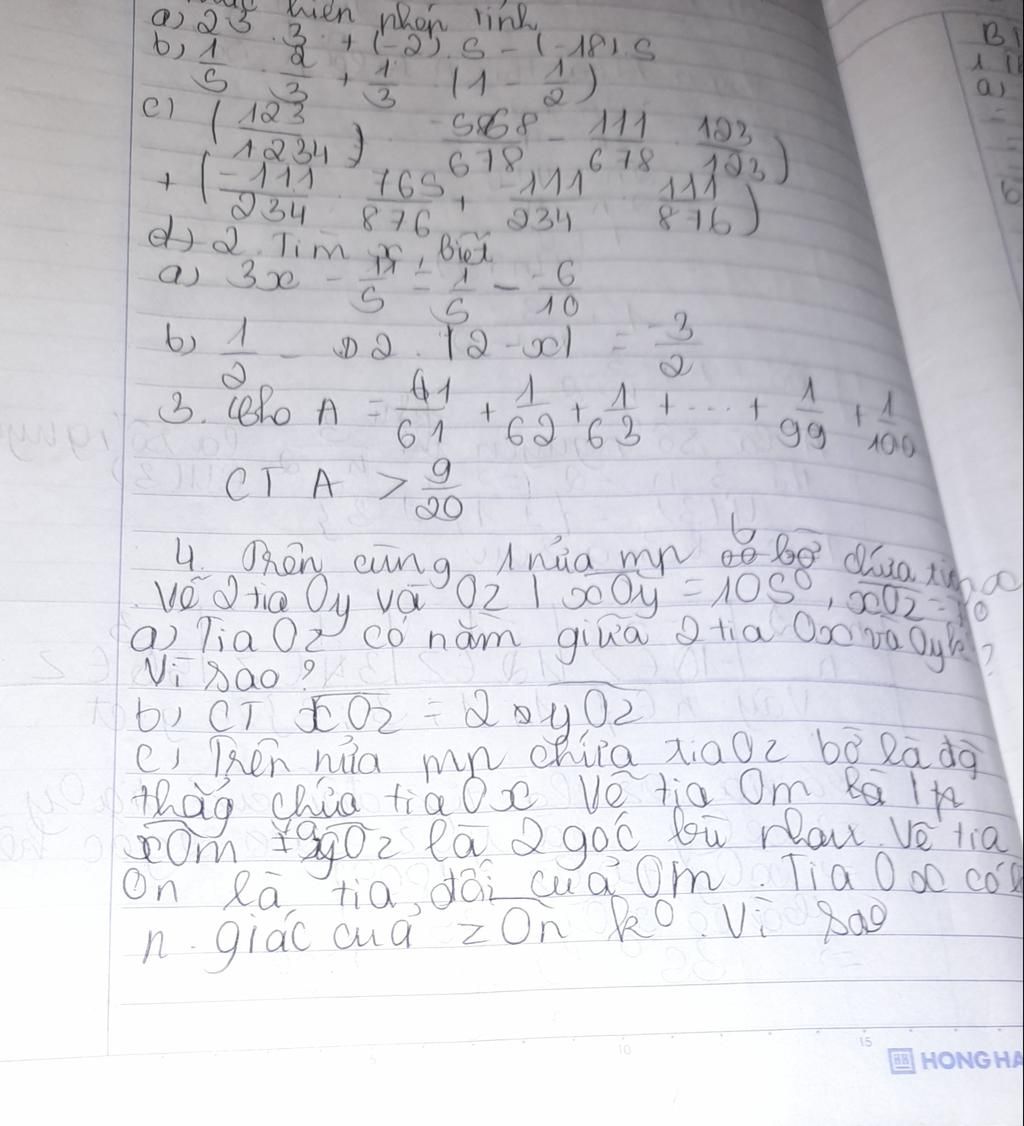 hiện phép tính
a) 23 . 3 + (-2) . 5 - (-18) . 5
b) 1/5 . 2/3 + 1/3 . (1 - 1/2)
c) (123/1234) 5868/678 - 111/678 . 123/123)
+ (-111/234 . 765/876 + -111/234 . 111/876)
d) 2. Tìm x, biết
a) 3x - /5 = 1/5 - -6/10
b) 1/2 - 2 . |2 - x| = -3/2
3. Cho A = 1/61 + 1/62 + 1/63 + ... + 1/99 + 1/100
CT A > 9/20
4. Trên cùng 1 nửa mp bờ chứa tia x
Vẽ 2 tia Oy và Oz | xOy = 105°, xOz = 70
a) Tia Oz có nằm giữa 2 tia Ox và Oy k?
Vì sao?
b) CT xOz = 2 yOz
c) Trên nửa mp chứa tia Oz bờ là đg
thẳg chứa tia Ox Vẽ tia Om
xOm yOz là 2 góc bù nhau. Vẽ tia
On là tia đối của Om. Tia Ox có
p. giác của zOn ko. Vì sao
15
10
5
HONG HA
B
a)
=
=